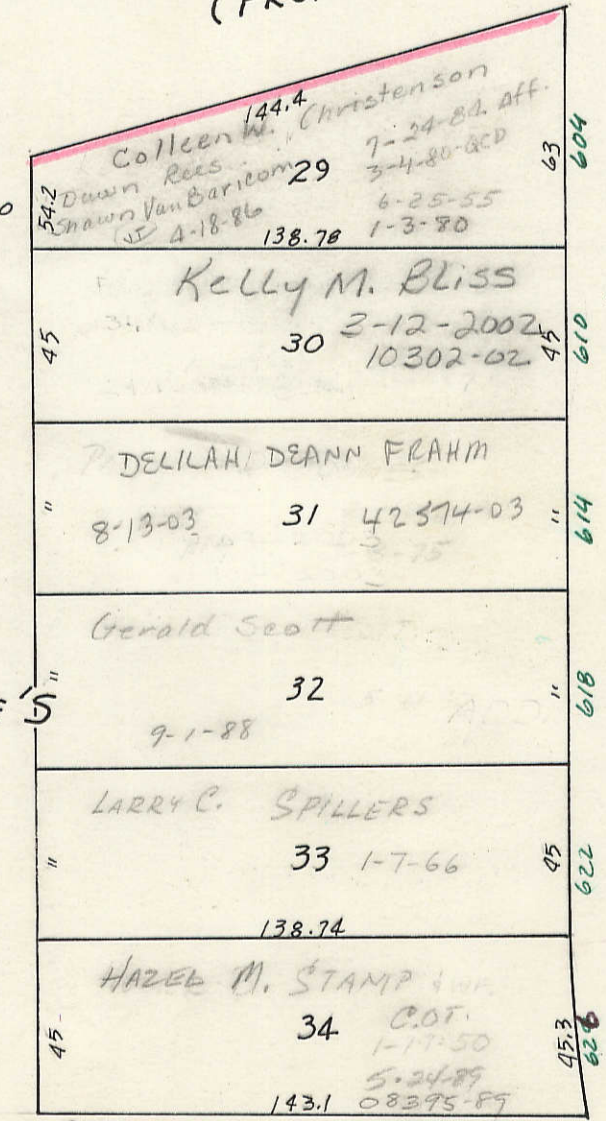 144.4
Colleen W. Christenson
Dawn Rees
Shawn Van Baricom
(JT) 4-18-86
29
7-24-84 Aff.
3-4-80-QCD
6-25-55
1-3-80
54.2
63
604
138.78
Kelly M. Bliss
30
3-12-2002
10302-02
45
45
610
DELILAH DEANN FRAHM
8-13-03
31
42574-03
"
"
614
Gerald Scott
32
9-1-88
"
"
618
'S
LARRY C. SPILLERS
33
1-7-66
"
45
622
138.74
HAZEL M. STAMP
34
C.OT.
1-17-50
5-24-89
08395-89
45
45.3
626
143.1